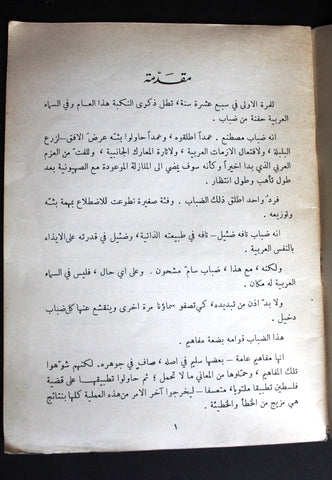 مقدّمة
للمرة الاولى في سبع عشرة سنة، تطل ذكرى النكبة هذا العام وفي السماء
العربية حفنة من ضباب.
انه ضباب مصطنع. عمداً اطلقوه، وعمداً حاولوا بثّه عرضَ الافق ـ لزرع
البلبلة، ولافتعال الازمات العربية، ولاثارة المعارك الجانبية، وللفتّ من العزم
العربي الذي بدا اخيراً وكأنه سوف يمضي الى المنازلة الموعودة مع الصهيونية بعد
طول تأهب وطول انتظار.
فردٌ واحد اطلق ذلك الضباب. وفئة صغيرة تطوعت للاضطلاع بمهمة بثّه
وتوزيعه.
انه ضباب ضئيل ـ تافه في طبيعته الذاتية، وضئيل في قدرته على الايذاء
بالنفس العربية.
ولكنه، مع هذا، ضباب سامّ مشحون. وعلى اي حال، فليس في السماء
العربية له مكان.
ولا بدّ اذن من تبديده، كي تصفو سماؤنا مرة اخرى وينقشع عنها كل ضباب
دخيل.
هذا الضباب قوامه بضعة مفاهيم.
انها مفاهيم عامة ـ بعضها سليم في اصله، صافٍ في جوهره. لكنهم شوّهوا
تلك المفاهيم، وحمّلوها من المعاني ما لا تحمل؛ ثم حاولوا تطبيقها على قضية
فلسطين تطبيقا ملتويا، متعسفا ـ ليخرجوا آخر الامر من هذه العملية كلها بنتائج
هي مزيج من الخطأ والخطيئة.
١